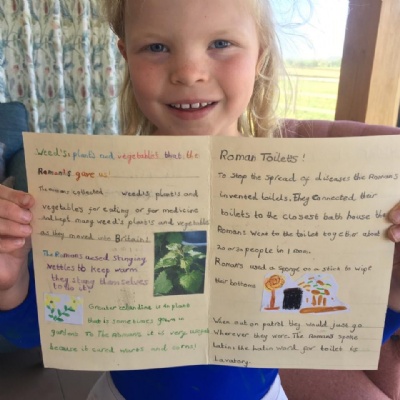 Weeds, plants and vegetables that the
Romans gave us
The Romans collected weeds, plants and
vegetables for eating or for medicine
and kept many weeds plants and vegetables
as they moved into Britain!
The Romans used Stinging
nettles to keep warm
they stung themselves
to do it!
Greater celandine is plant
that is sometimes grown in
gardens. To the Romans it is very
because it cured warts and corns!
Roman Toilets!
To stop the spread of diseases the Romans
invented toilets. They connected their
toilets to the closest bath house the
Romans went to the toilet together about
20 or 30 people in 1 room.
Romans used a sponge on a stick to wipe
their bottoms
When out on patrol they would just go
wherever they were. The Romans spoke
latin. the latin word for toilet is
lavatory.